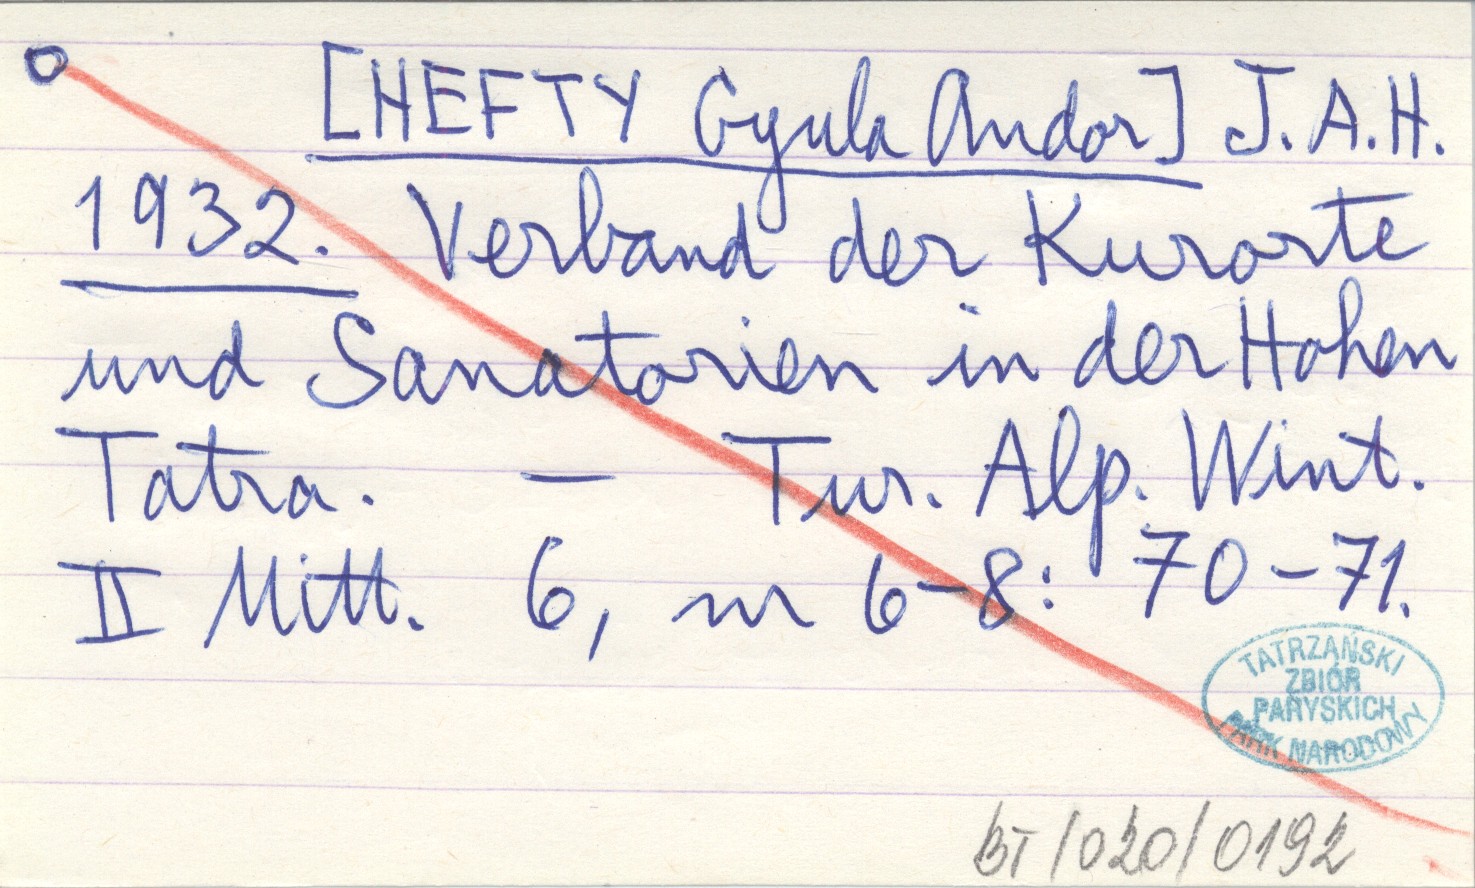 [HEFTY Gyula Andor] J.A.H.
1932. Verband der Kurorte
und Sanatorien in der Hohen
Tatra. — Tur. Alp. Wint.
II Mitt. 6, nr 6-8: 70-71.
TATRZAŃSKI
ZBIÓR
PARYSKICH
PARK NARODOWY
BT/020/0192